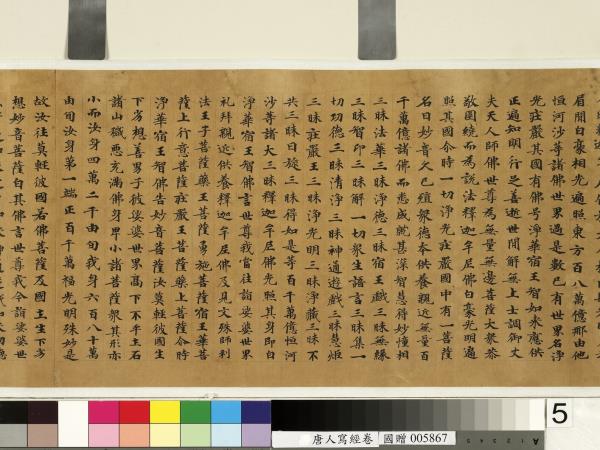 眉間白豪相光遍照東方百八萬億那由他
恒河沙等諸佛世界過是數已有世界名淨
光莊嚴其國有佛号淨華宿王智如來應供
正遍知明行足善逝世間解無上士調御丈
夫天人師佛世尊為無量無邊菩薩大衆恭
敬圍繞而為說法釋迦牟尼佛白豪光明遍
照其國尒時一切淨光莊嚴國中有一菩薩
名曰妙音久已殖衆德本供養親近無量百
千萬億諸佛而悉成就甚深智慧得妙憧相
三昧法華三昧淨德三昧宿王戲三昧無緣
三昧智印三昧解一切衆生語言三昧集一
切功德三昧清淨三昧神通遊戲三昧慧炬
三昧莊嚴王三昧淨光明三昧淨藏三昧不
共三昧日旋三昧得如是等百千萬億恒河
沙等諸大三昧釋迦牟尼佛光照其身即白
淨華宿王智佛言世尊我當往詣娑婆世界
礼拜親近供養釋迦牟尼佛及見文殊師利
法王子菩薩藥王菩薩勇施菩薩宿王華菩
薩上行意菩薩莊嚴王菩薩藥上菩薩尒時
淨華宿王智佛告妙音菩薩汝莫輕彼國生
下劣想善男子彼娑婆世界高下不平土石
諸山穢惡充滿佛身卑小諸菩薩衆其形亦
小而汝身四萬二千由旬我身六百八十萬
由旬汝身第一端正百千萬福光明殊妙是
故汝往莫輕彼國若佛菩薩及國土生下劣
想妙音菩薩白其佛言世尊我今詣娑婆世
唐人寫經卷 國贈 005867
5